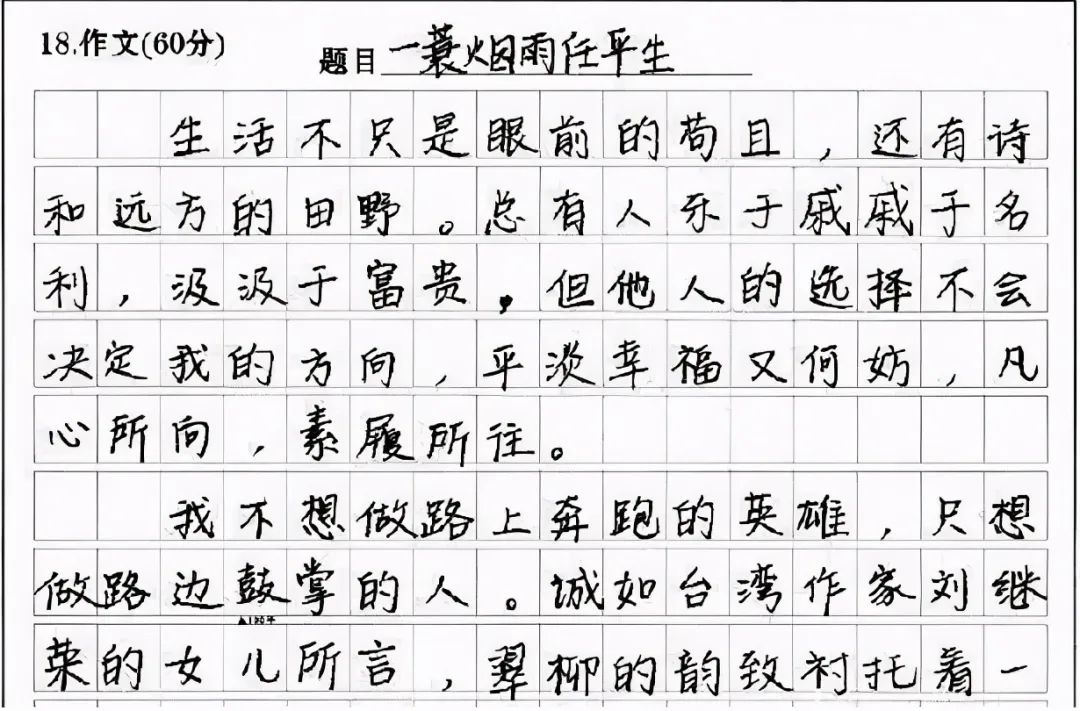 18.作文(60分)
题目 一蓑烟雨任平生
生活不只是眼前的苟且，还有诗
和远方的田野。总有人乐于戚戚于名
利，汲汲于富贵，但他人的选择不会
决定我的方向，平淡幸福又何妨，凡
心所向，素履所往。
我不想做路上奔跑的英雄，只想
做路边鼓掌的人。诚如台湾作家刘继
▲120字
荣的女儿所言，翠柳的韵致衬托着一